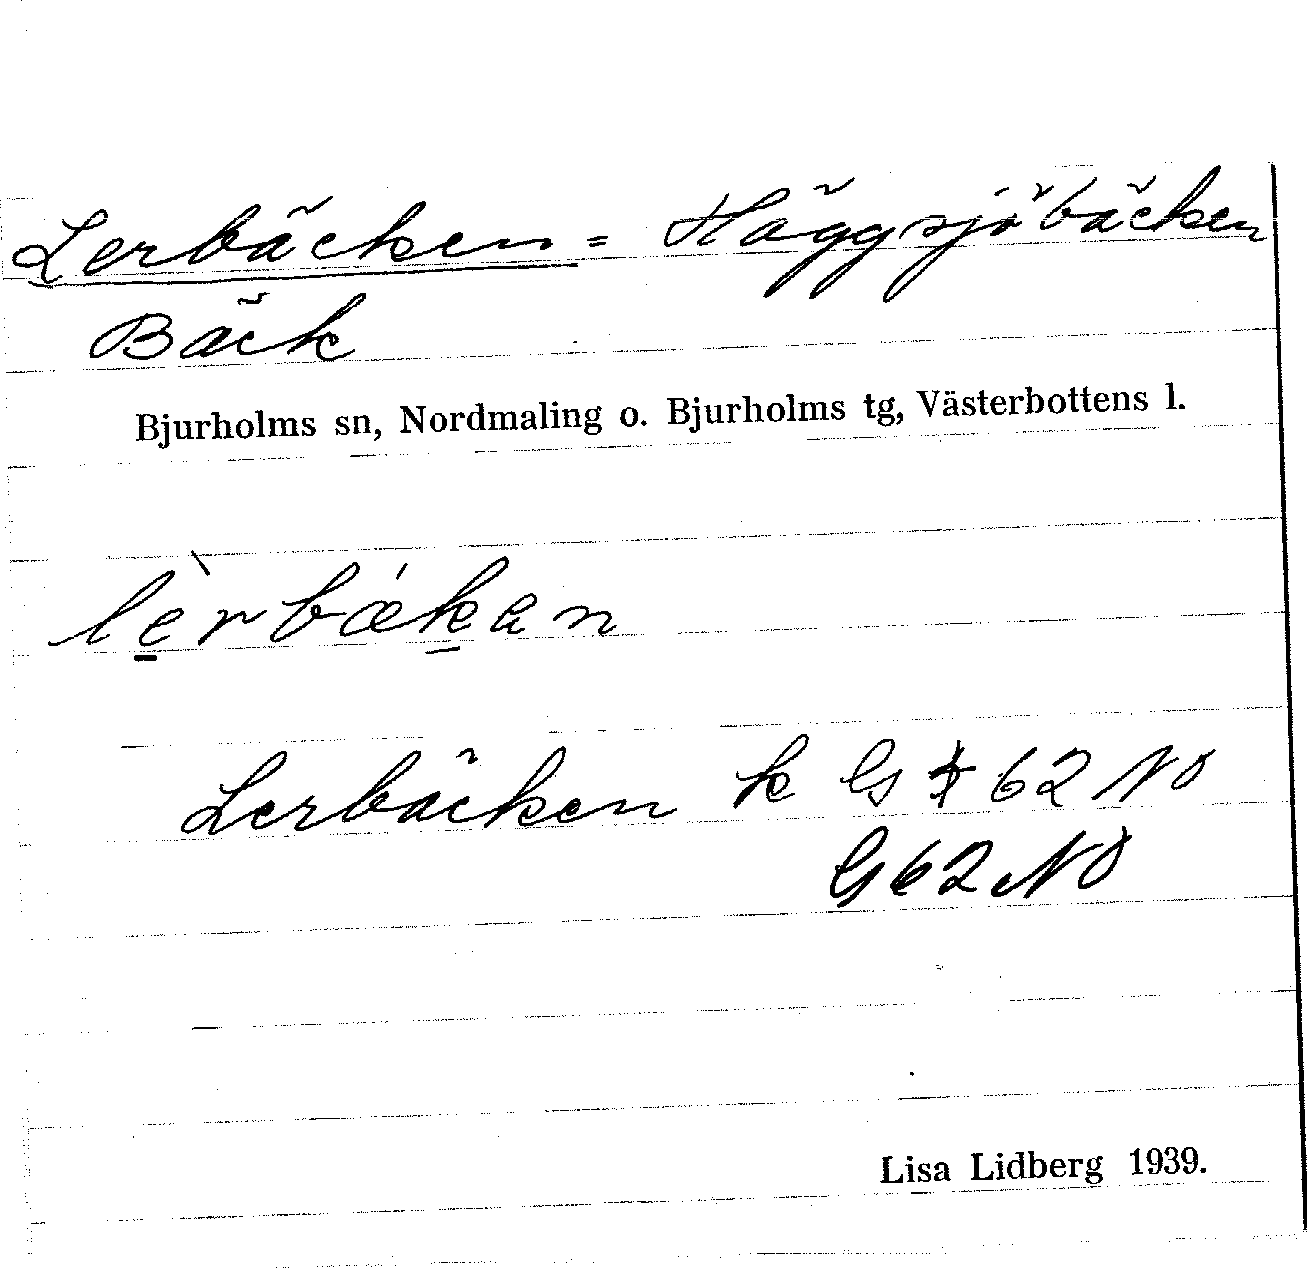 Lerbäcken = Häggsjöbäcken
Bäck
Bjurholms sn, Nordmaling o. Bjurholms tg, Västerbottens l.
lèrbækan
Lerbäcken k Gs 62 NO
G 62 NO
Lisa Lidberg 1939.